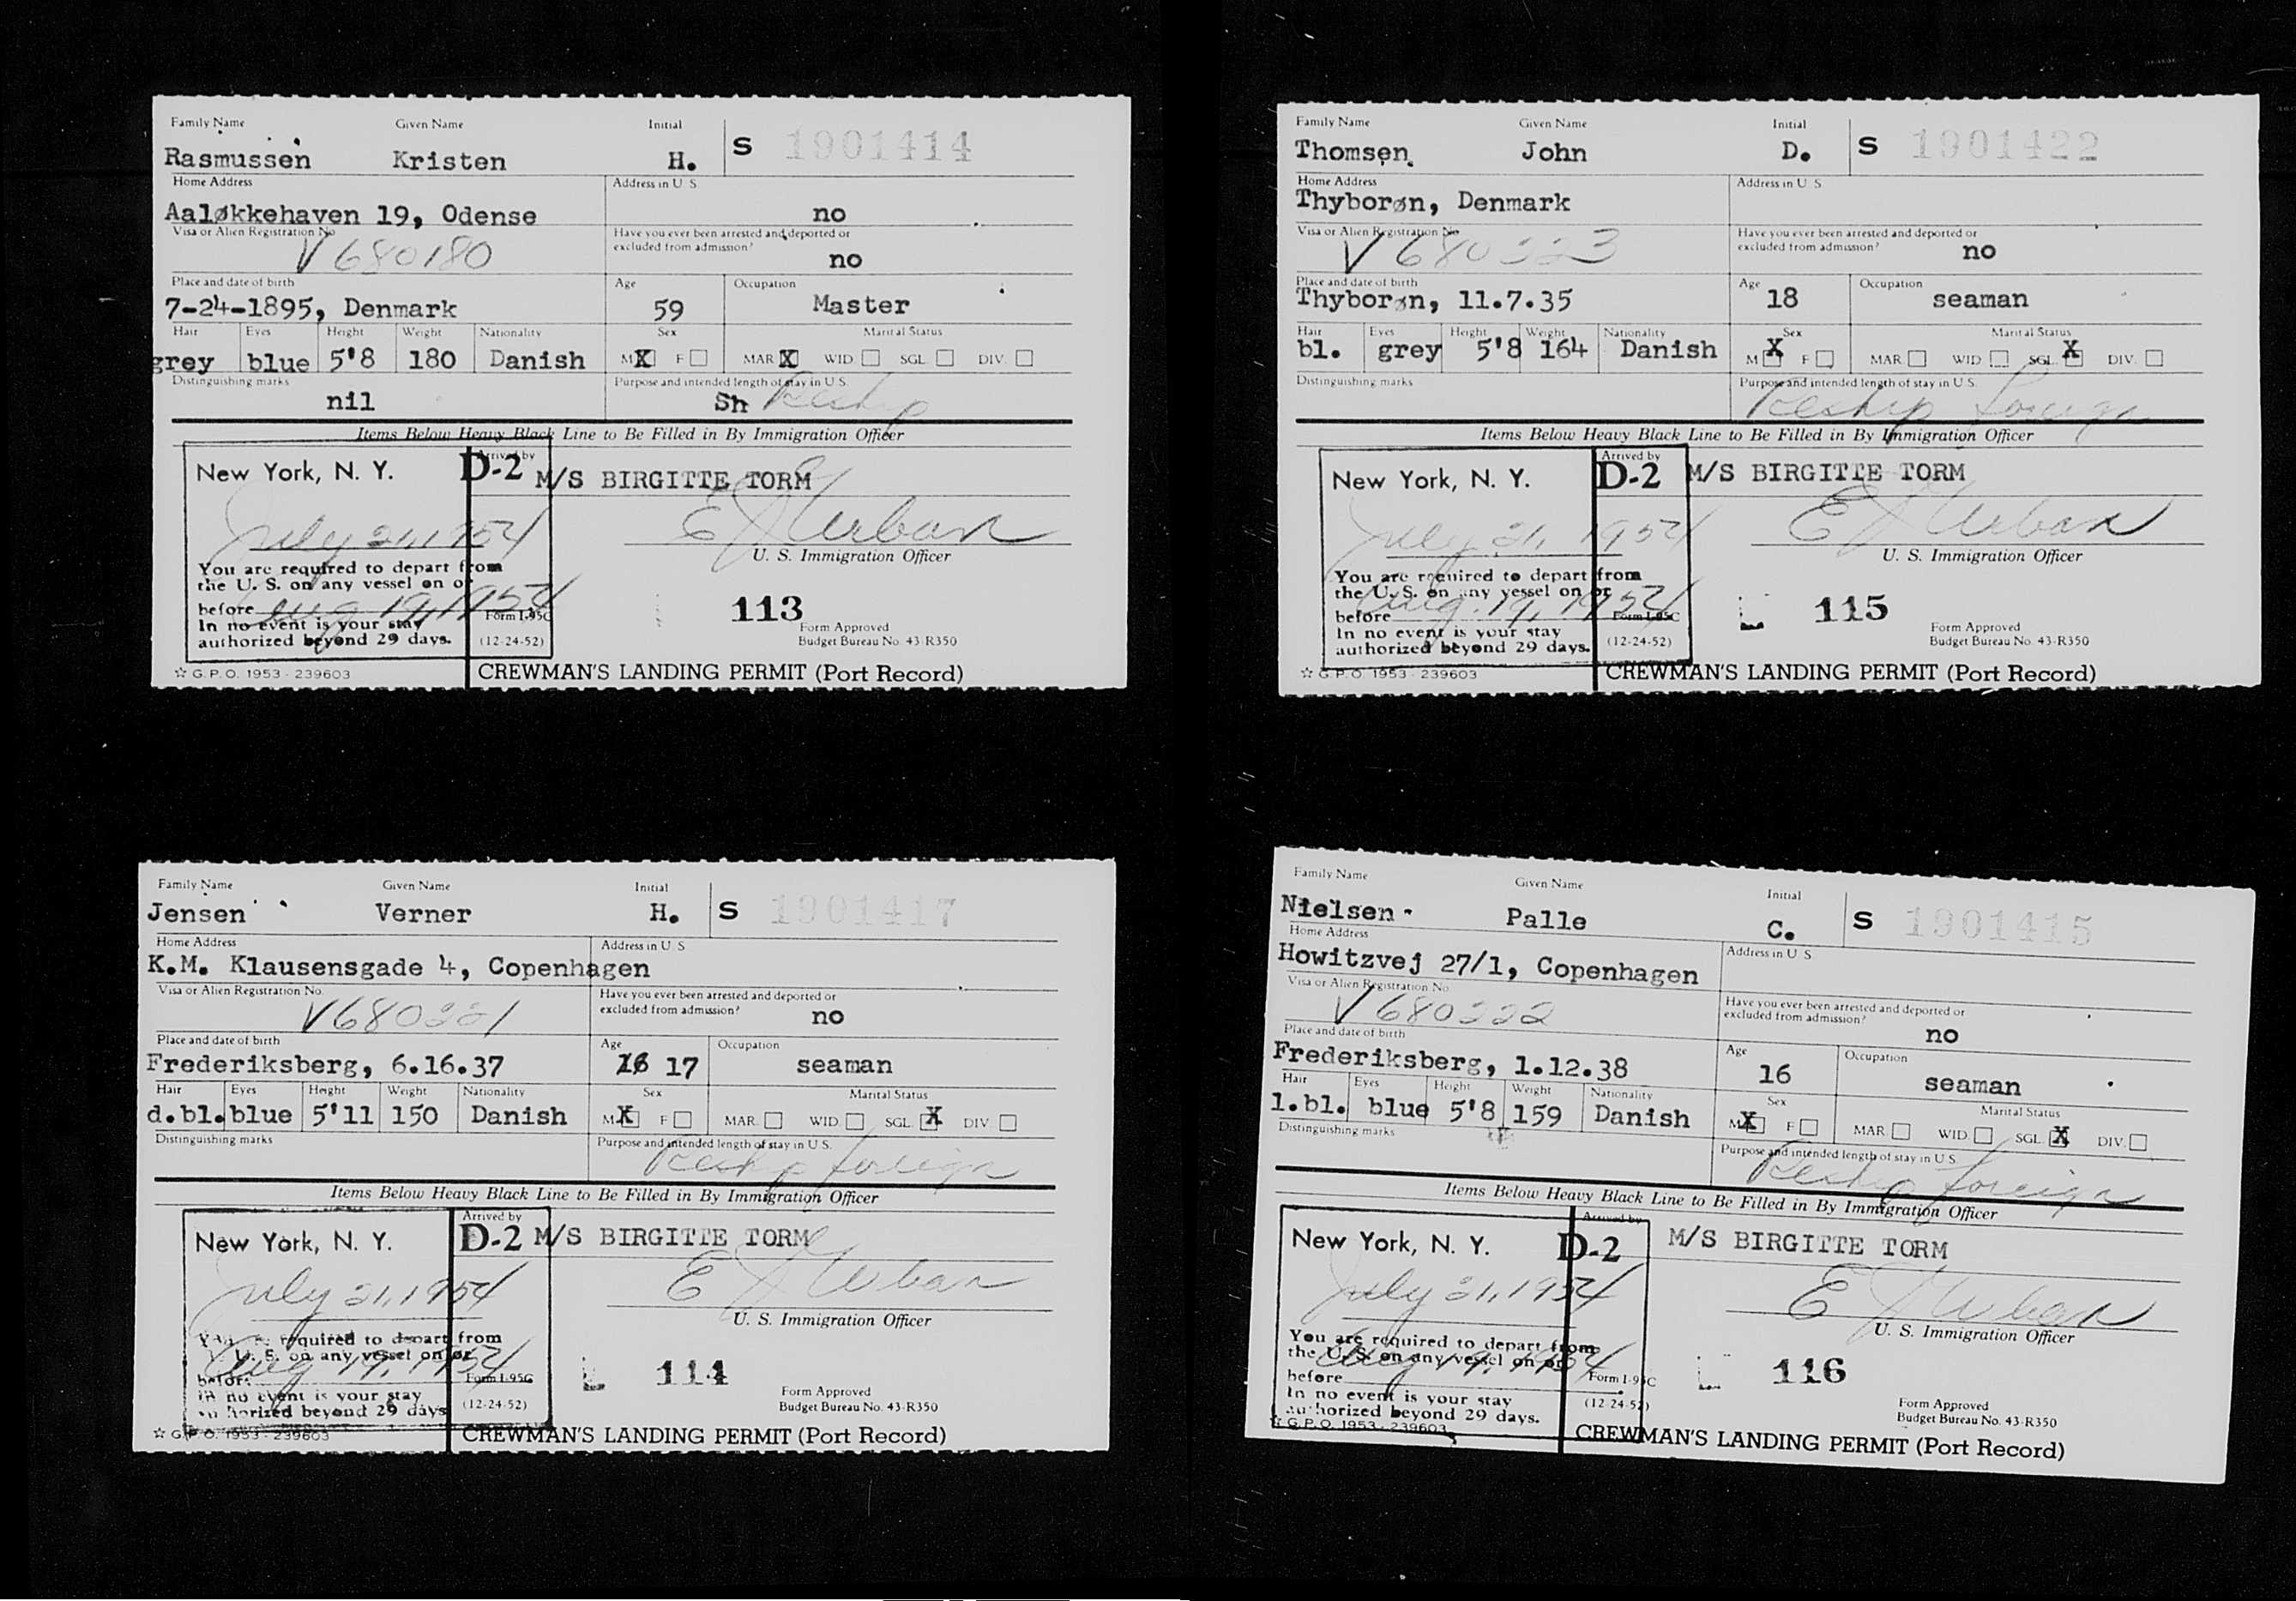 Family Name Given Name Initial
Rasmussen Kristen H. S 1901414
Home Address Address in U S
Aaløkkehaven 19, Odense no
Visa or Alien Registration No Have you ever been arrested and deported or
excluded from admission?
V680180 no
Place and date of birth Age Occupation
7-24-1895, Denmark 59 Master
Hair Eyes Height Weight Nationality Sex Marital Status
grey blue 5'8 180 Danish M X F MAR X WID. SGL. DIV.
Distinguishing marks Purpose and intended length of stay in U.S.
nil Sh Reship
Items Below Heavy Black Line to Be Filled in By Immigration Officer
Arrived by
New York, N. Y. D-2 M/S BIRGITTE TORM
July 21, 1954 E J Urban
U. S. Immigration Officer
You are required to depart from
the U. S. on any vessel on or
before Aug 19, 1954 Form I-95C
In no event is your stay
authorized beyond 29 days. (12-24-52)
113
Form Approved
Budget Bureau No. 43-R350
☆ G.P.O. 1953 - 239603 CREWMAN'S LANDING PERMIT (Port Record)
Family Name Given Name Initial
Thomsen John D. S 1901422
Home Address Address in U S
Thyborøn, Denmark
Visa or Alien Registration No Have you ever been arrested and deported or
excluded from admission?
V680223 no
Place and date of birth Age Occupation
Thyborøn, 11.7.35 18 seaman
Hair Eyes Height Weight Nationality Sex Marital Status
bl. grey 5'8 164 Danish M X F MAR WID. SGL. X DIV.
Distinguishing marks Purpose and intended length of stay in U.S.
Reship foreign
Items Below Heavy Black Line to Be Filled in By Immigration Officer
Arrived by
New York, N. Y. D-2 M/S BIRGITTE TORM
July 21, 1954 E J Urban
U. S. Immigration Officer
You are required to depart from
the U. S. on any vessel on or
before Aug. 19, 1954 Form I-95C
In no event is your stay
authorized beyond 29 days. (12-24-52)
115
Form Approved
Budget Bureau No. 43-R350
☆ G.P.O. 1953 - 239603 CREWMAN'S LANDING PERMIT (Port Record)
Family Name Given Name Initial
Jensen Verner H. S 1901417
Home Address Address in U S
K.M. Klausensgade 4, Copenhagen
Visa or Alien Registration No. Have you ever been arrested and deported or
excluded from admission?
V680221 no
Place and date of birth Age Occupation
Frederiksberg, 6.16.37 16 17 seaman
Hair Eyes Height Weight Nationality Sex Marital Status
d.bl. blue 5'11 150 Danish M X F MAR. WID. SGL. X DIV.
Distinguishing marks Purpose and intended length of stay in U.S.
Reship foreign
Items Below Heavy Black Line to Be Filled in By Immigration Officer
Arrived by
New York, N. Y. D-2 M/S BIRGITTE TORM
July 21, 1954 E J Urban
U. S. Immigration Officer
required to depart from
U. S. on any vessel on or
before Aug 19, 1954 Form I-95C
In no event is your stay
authorized beyond 29 days (12-24-52)
114
Form Approved
Budget Bureau No. 43-R350
☆ G.P.O. 1953 - 239603 CREWMAN'S LANDING PERMIT (Port Record)
Family Name Given Name Initial
Nielsen Palle C. S 1901415
Home Address Address in U S
Howitzvej 27/1, Copenhagen
Visa or Alien Registration No Have you ever been arrested and deported or
excluded from admission?
V680222 no
Place and date of birth Age Occupation
Frederiksberg, 1.12.38 16 seaman
Hair Eyes Height Weight Nationality Sex Marital Status
l.bl. blue 5'8 159 Danish M X F MAR. WID. SGL. X DIV.
Distinguishing marks Purpose and intended length of stay in U.S.
Reship foreign
Items Below Heavy Black Line to Be Filled in By Immigration Officer
Arrived by
New York, N. Y. D-2 M/S BIRGITTE TORM
July 21, 1954 E J Urban
U. S. Immigration Officer
You are required to depart from
the U. S. on any vessel on or
before Aug 19, 1954 Form I-95C
In no event is your stay
authorized beyond 29 days. (12-24-52)
116
Form Approved
Budget Bureau No. 43-R350
☆ G.P.O. 1953 - 239603 CREWMAN'S LANDING PERMIT (Port Record)